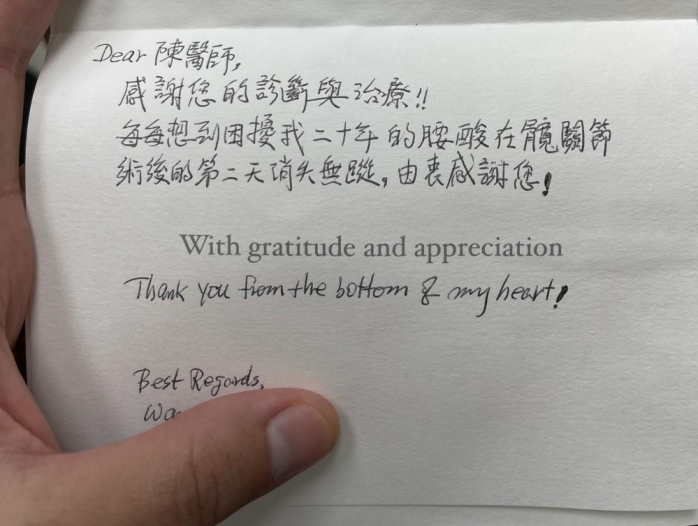 Dear 陳醫師,
感謝您的診斷與治療!!
每每想到困擾我二十年的腰酸在髖關節
術後的第二天消失無蹤,由衷感謝您!
With gratitude and appreciation
Thank you from the bottom of my heart!
Best Regards,